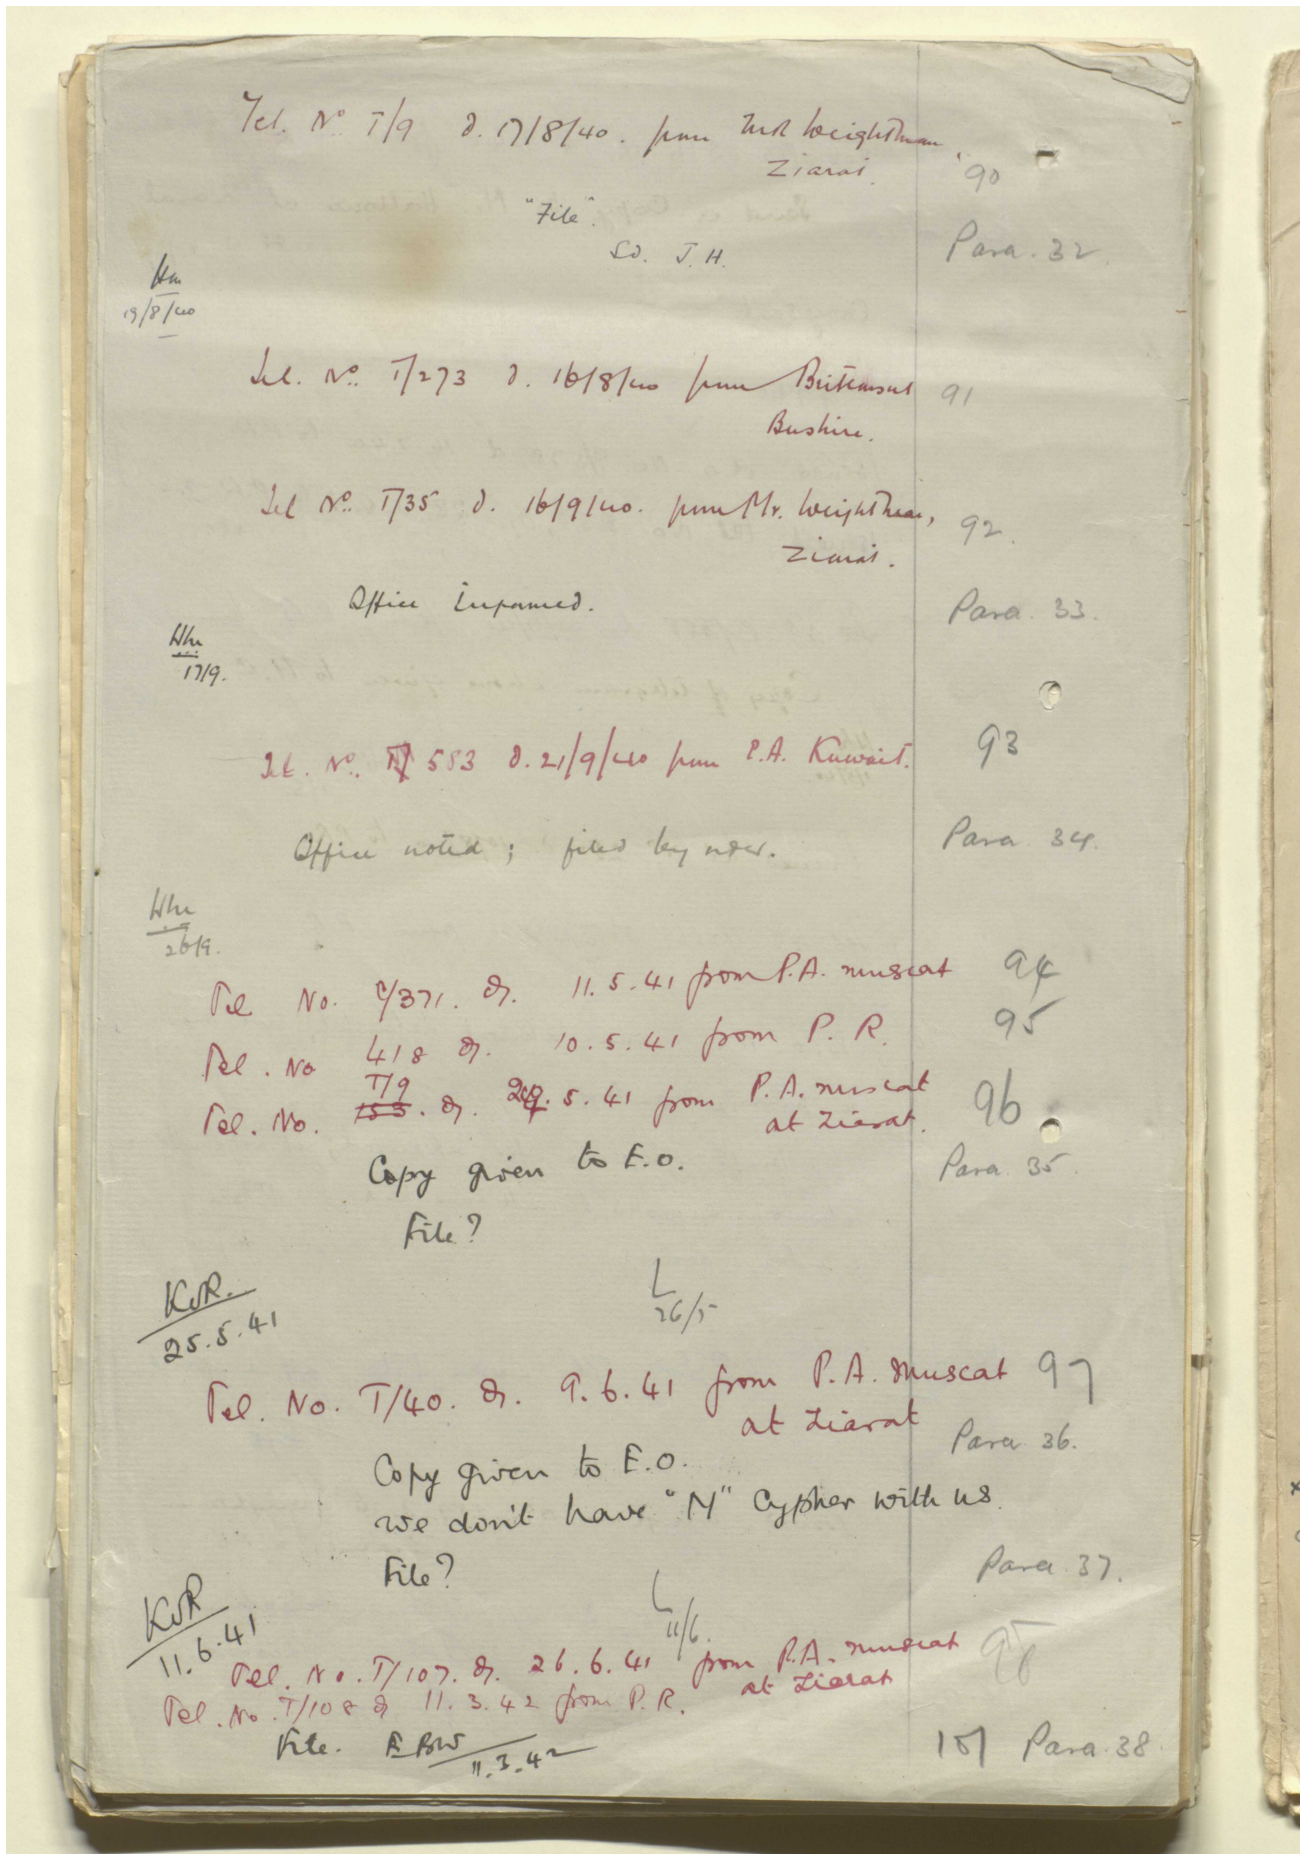 Tel. No. T/9 d. 17/8/40. from Mr Weightman,
Ziarat. 90
"File".
Sd. J.H. Para. 32.
19/8/40
Tel. No. T/273 d. 16/8/40 from Britconsul 91
Bushire.
Tel No. T/35 d. 16/9/40. from Mr. Weightman, 92.
Ziarat.
Office informed. Para. 33.
17/9.
Tel. No. 583 d. 21/9/40 from P.A. Kuwait. 93
Office noted; filed by order. Para 34.
26/9.
Tel No. C/371. d. 11.5.41 from P.A. muscat 94
Tel. No 418 d. 10.5.41 from P.R. 95
T/9
Tel. No. 153. d. 24.5.41 from P.A. muscat 96
at Ziarat.
Copy given to E.O. Para. 35.
File?
L
26/5
KVR.
25.5.41
Tel. No. T/40. d. 9.6.41 from P.A. Muscat 97
at Ziarat
Para 36.
Copy given to E.O.
we don't have "M" Cypher with us.
File? Para 37.
L
11/6.
KVR
11.6.41
Tel. No. T/107. d. 26.6.41 from P.A. muscat 98
at Ziarat
Tel. No. T/108 d 11.3.42 from P.R.
File. 11.3.42 101 Para. 38.